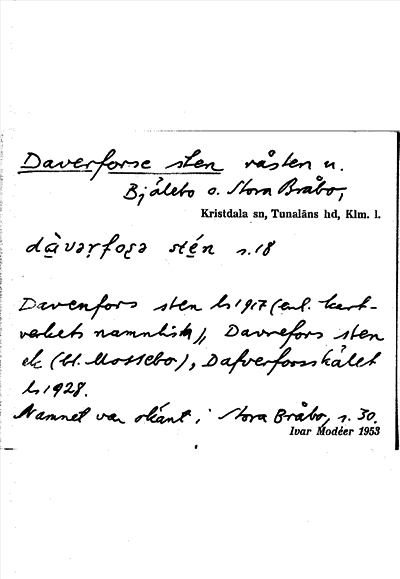 Daverforse sten råsten u.
Bjälebo o. Stora Bråbo,
Kristdala sn, Tunaläns hd, Klm. l.
dàvərfoʂə stén s. 18
Davenfors sten ls 1917 (enl. kart-
verkets namnlista), Davrefors sten
ek (bl. Mossebo), Dafverforsskålet
ls 1928.
Namnet var okänt i Stora Bråbo, s. 30.
Ivar Modéer 1953